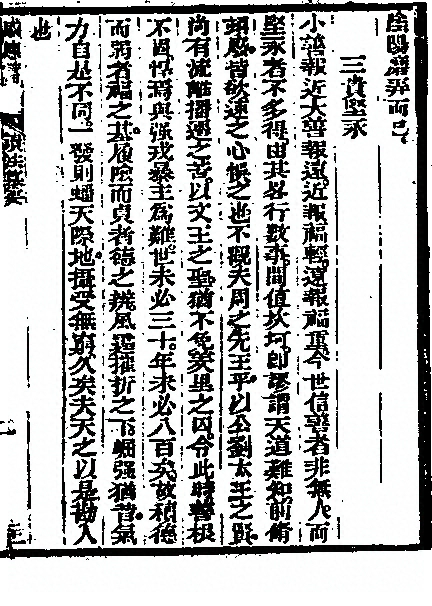 陰陽弄而已
三貴堅永
小善報近大善報遠。近報福輕。遠報福重。今世信善者非無人。而
堅永者不多得。由其畧行數事。間值坎坷。卽謬謂天道難知。前脩
頓廢。皆欲速之心悞之也。不觀夫周之先王乎。以公劉太王之賢。
尚有流離播遷之苦。以文王之聖。猶不免羑里之囚。令此時善根
不固。悍焉與强戎暴主為難。世未必三十。年未必八百矣。故積德
而窮者福之基。履險而貞者德之風霆摧折之下。崛强猶昔。氣
力自是不同。一發則蟠天際地。攝受無窮。久矣夫天之以是勘人
也